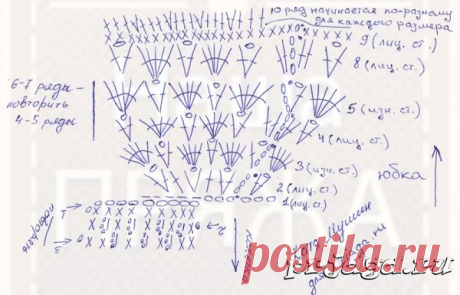 10 ряд начинается по-разному
для каждого размера
9 (лиц. ст.)
8 (лиц. ст.)
6-7 ряды-
повторить
4-5 ряды
5 (изн. ст.)
4 (лиц. ст.)
3 (изн. ст.)
юбка
2 (лиц. ст.)
1 (лиц. ст.)
для
postila.ru